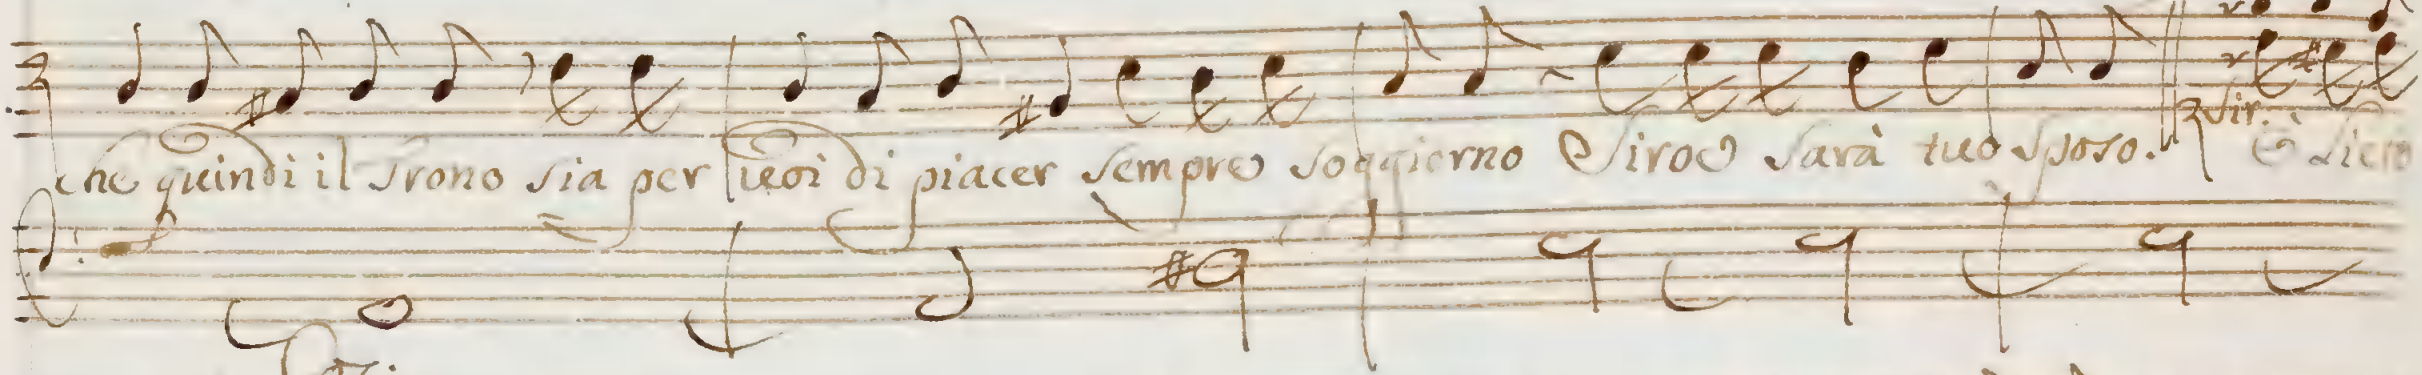 che quindi il Trono sia per voi di piacer sempre soggiorno Siroe sarà tuo sposo. Sir. E